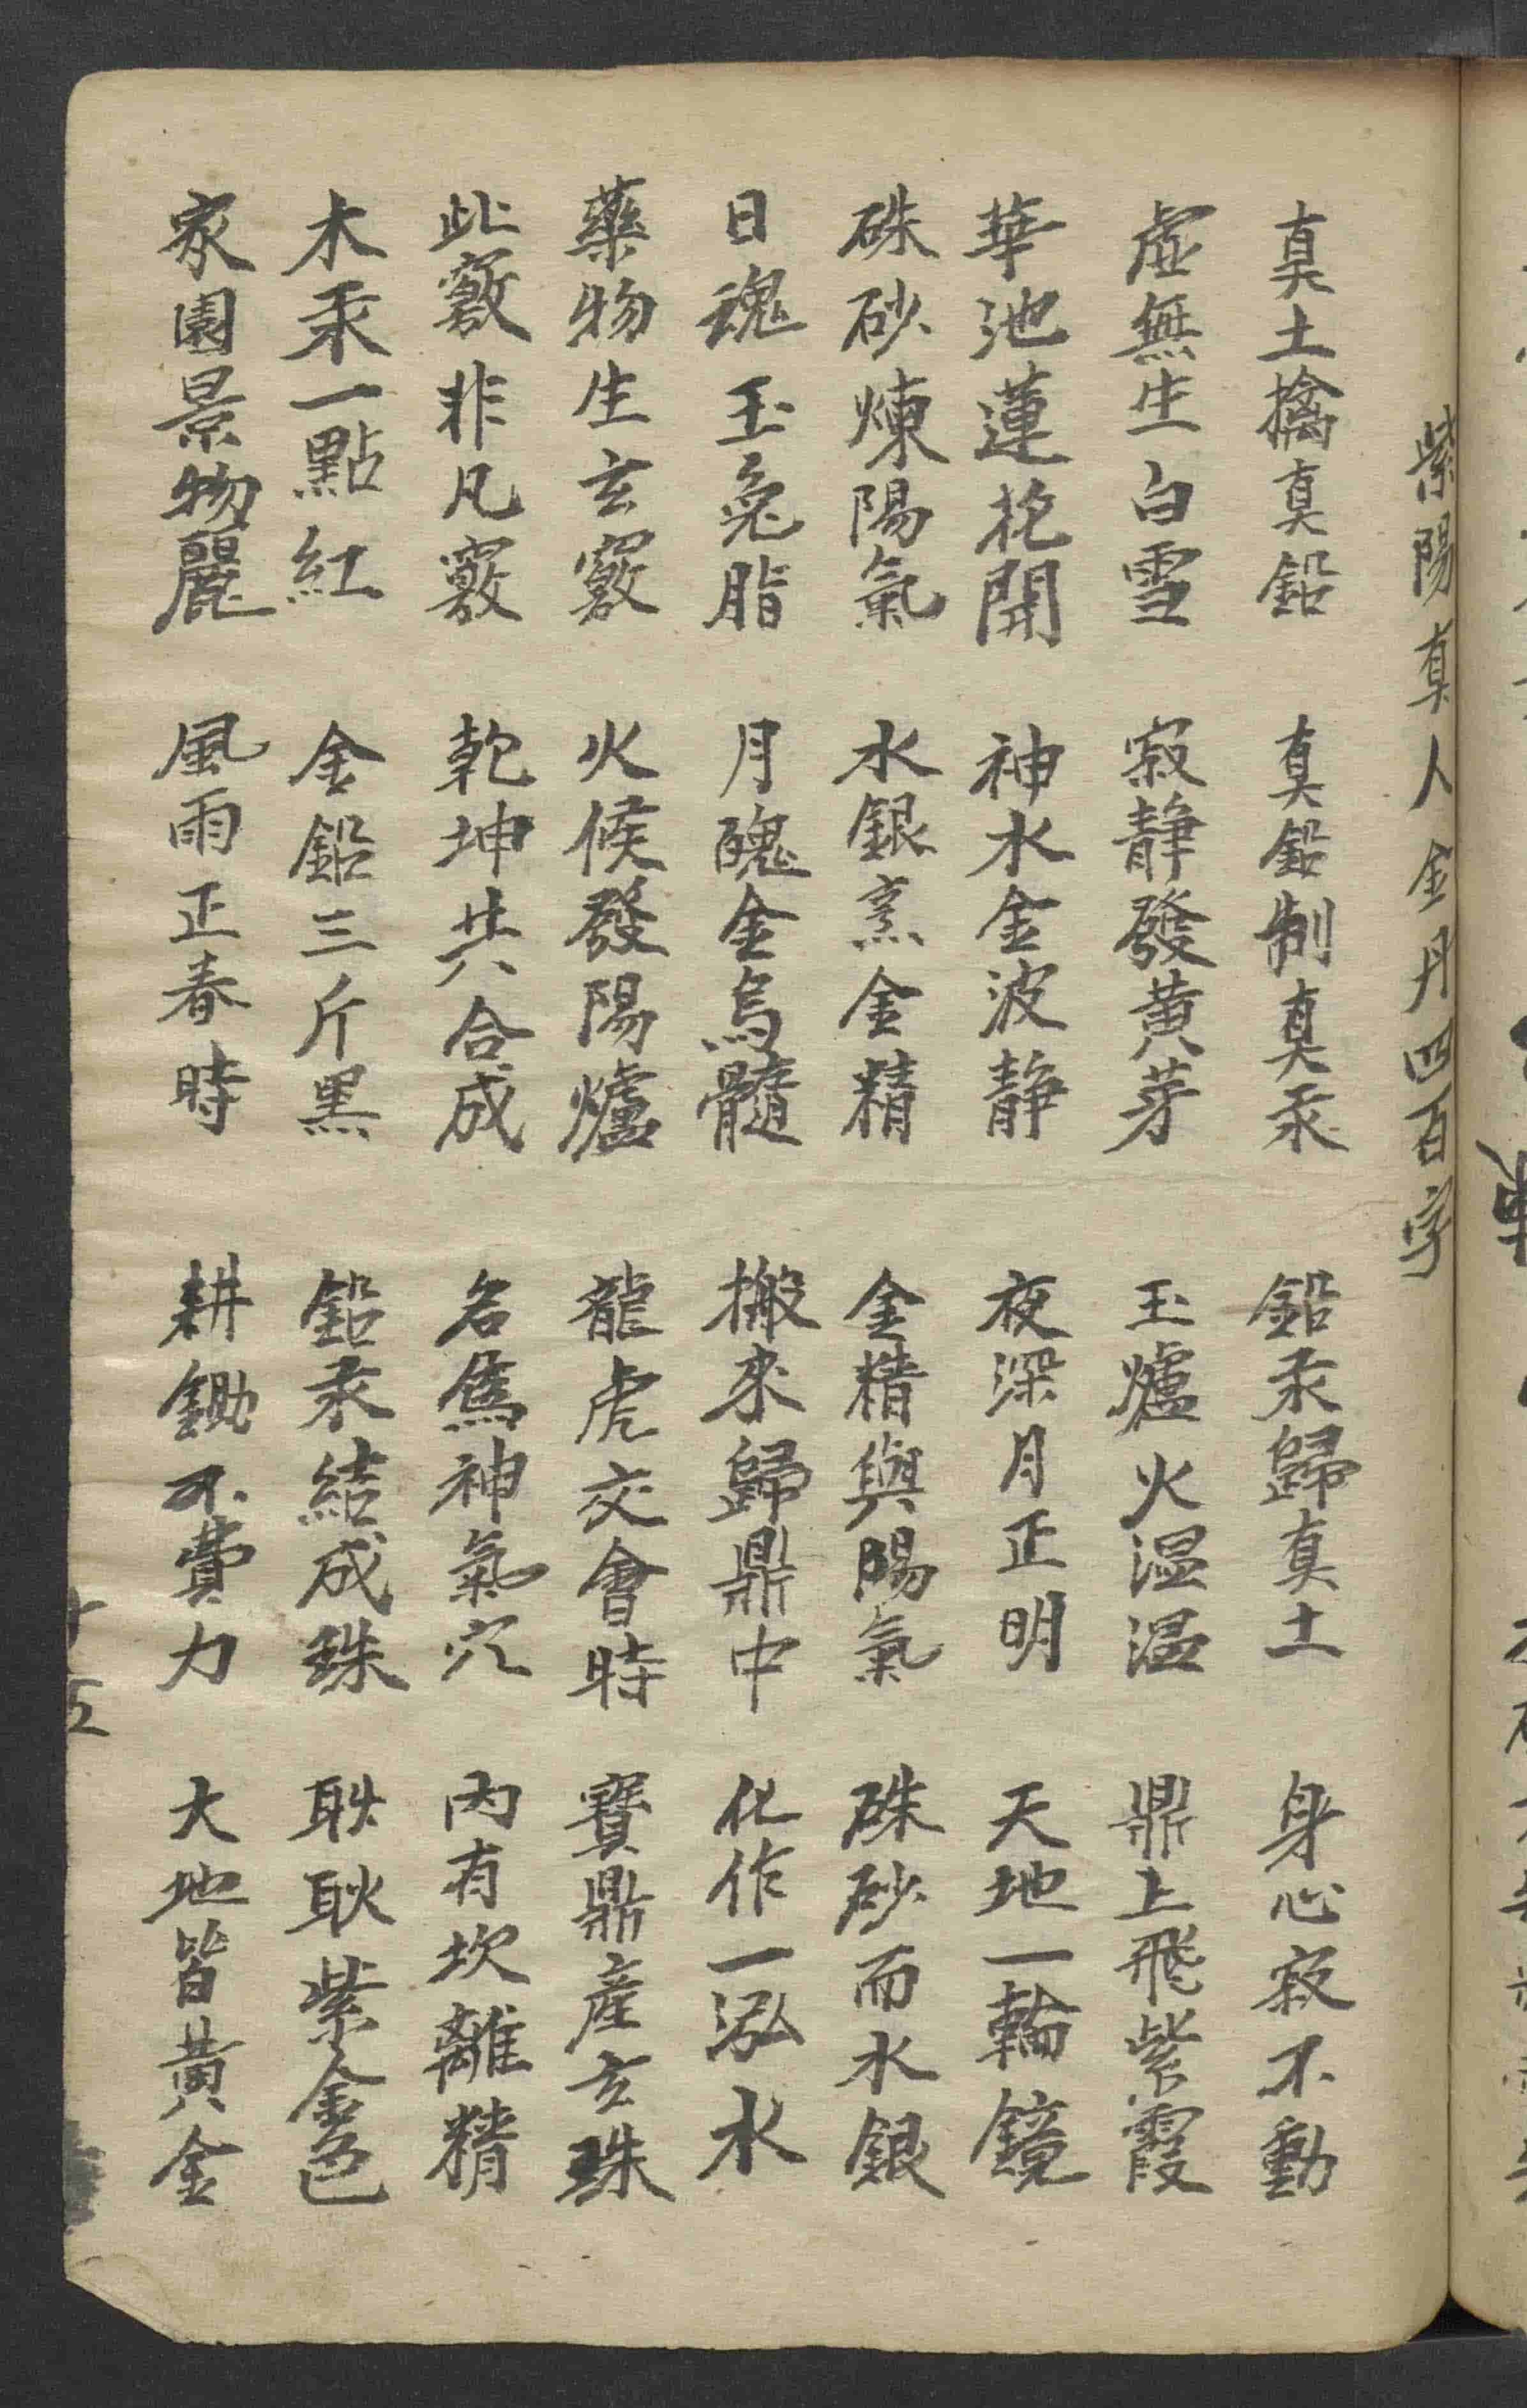 紫陽真人金丹四百字
真土擒真鉛 真鉛制真汞 鉛汞歸真土 身心寂不動
虛無生白雪 寂靜發黃芽 玉爐火温温 鼎上飛紫霞
華池蓮花開 神水金波静 夜深月正明 天地一輪鏡
硃砂煉陽氣 水銀烹金精 金精與陽氣 硃砂而水銀
日魂玉兔脂 月魄金烏髓 搬來歸鼎中 化作一泓水
藥物生玄竅 火候發陽爐 龍虎交會時 寶鼎產玄珠
此竅非凡竅 乾坤共合成 名為神氣穴 內有坎離精
木汞一點紅 金鉛三斤黑 鉛汞結成珠 耿耿紫金色
家園景物麗 風雨正春時 耕鋤不費力 大地皆黃金